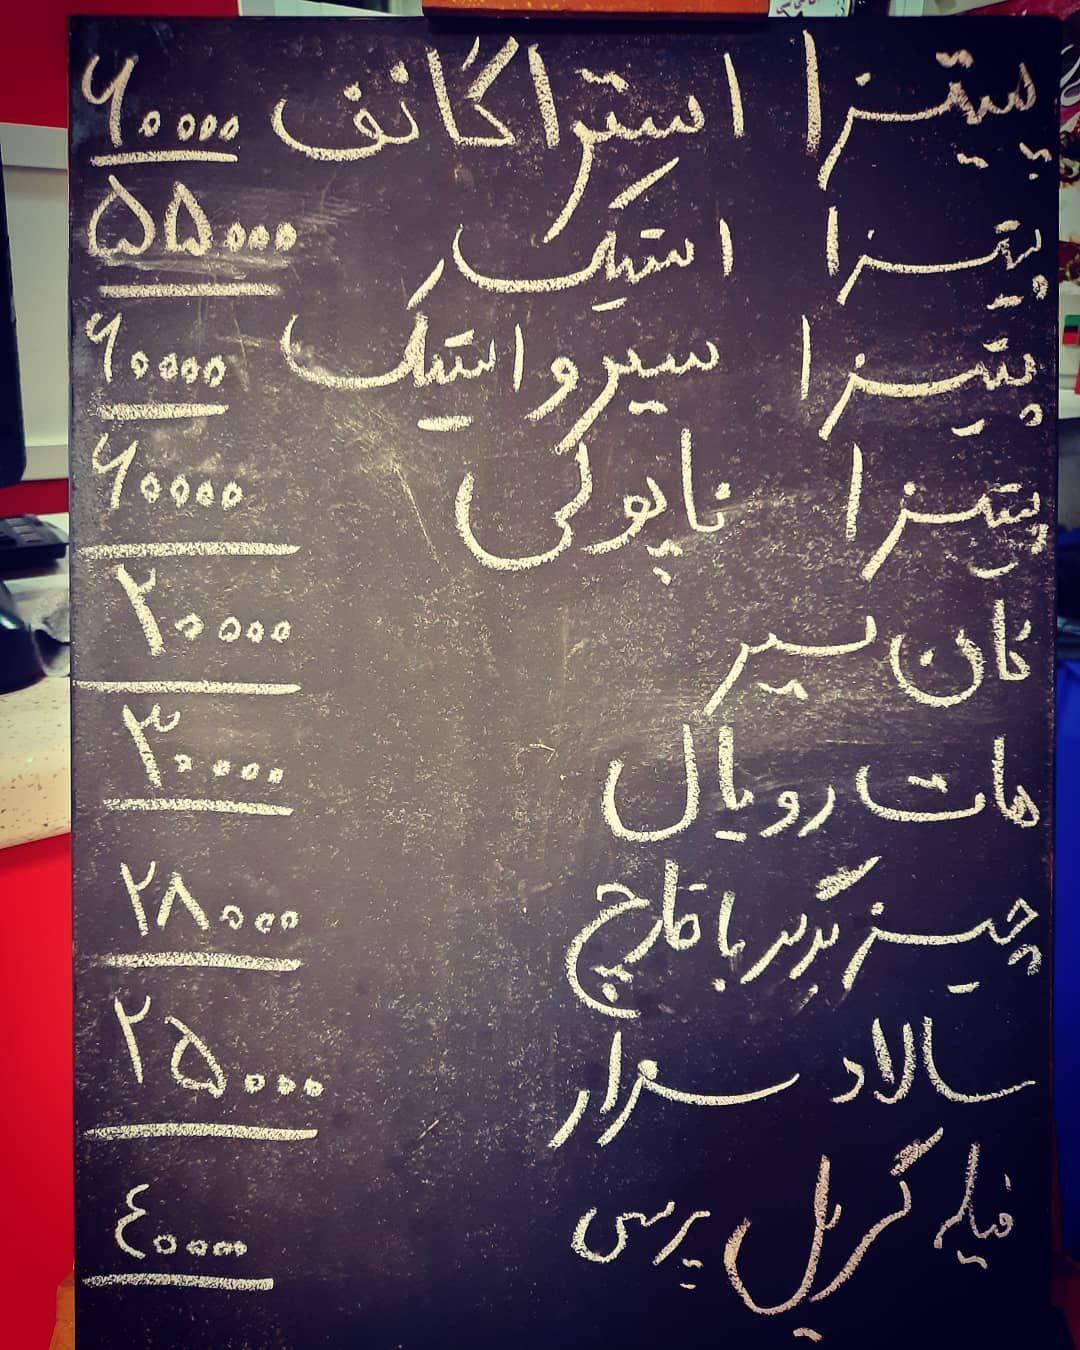 پیتزا استراگانف ۶۰۰۰۰
پیتزا استیک ۵۵۰۰۰
پیتزا سیر و استیک ۶۰۰۰۰
پیتزا ناپوکی ۶۰۰۰۰
نان سیر ۲۰۰۰۰
هات رویال ۳۰۰۰۰
چیز برگر با قارچ ۲۸۰۰۰
سالاد سزار ۲۵۰۰۰
فیله گریل پرسی ۴۰۰۰۰